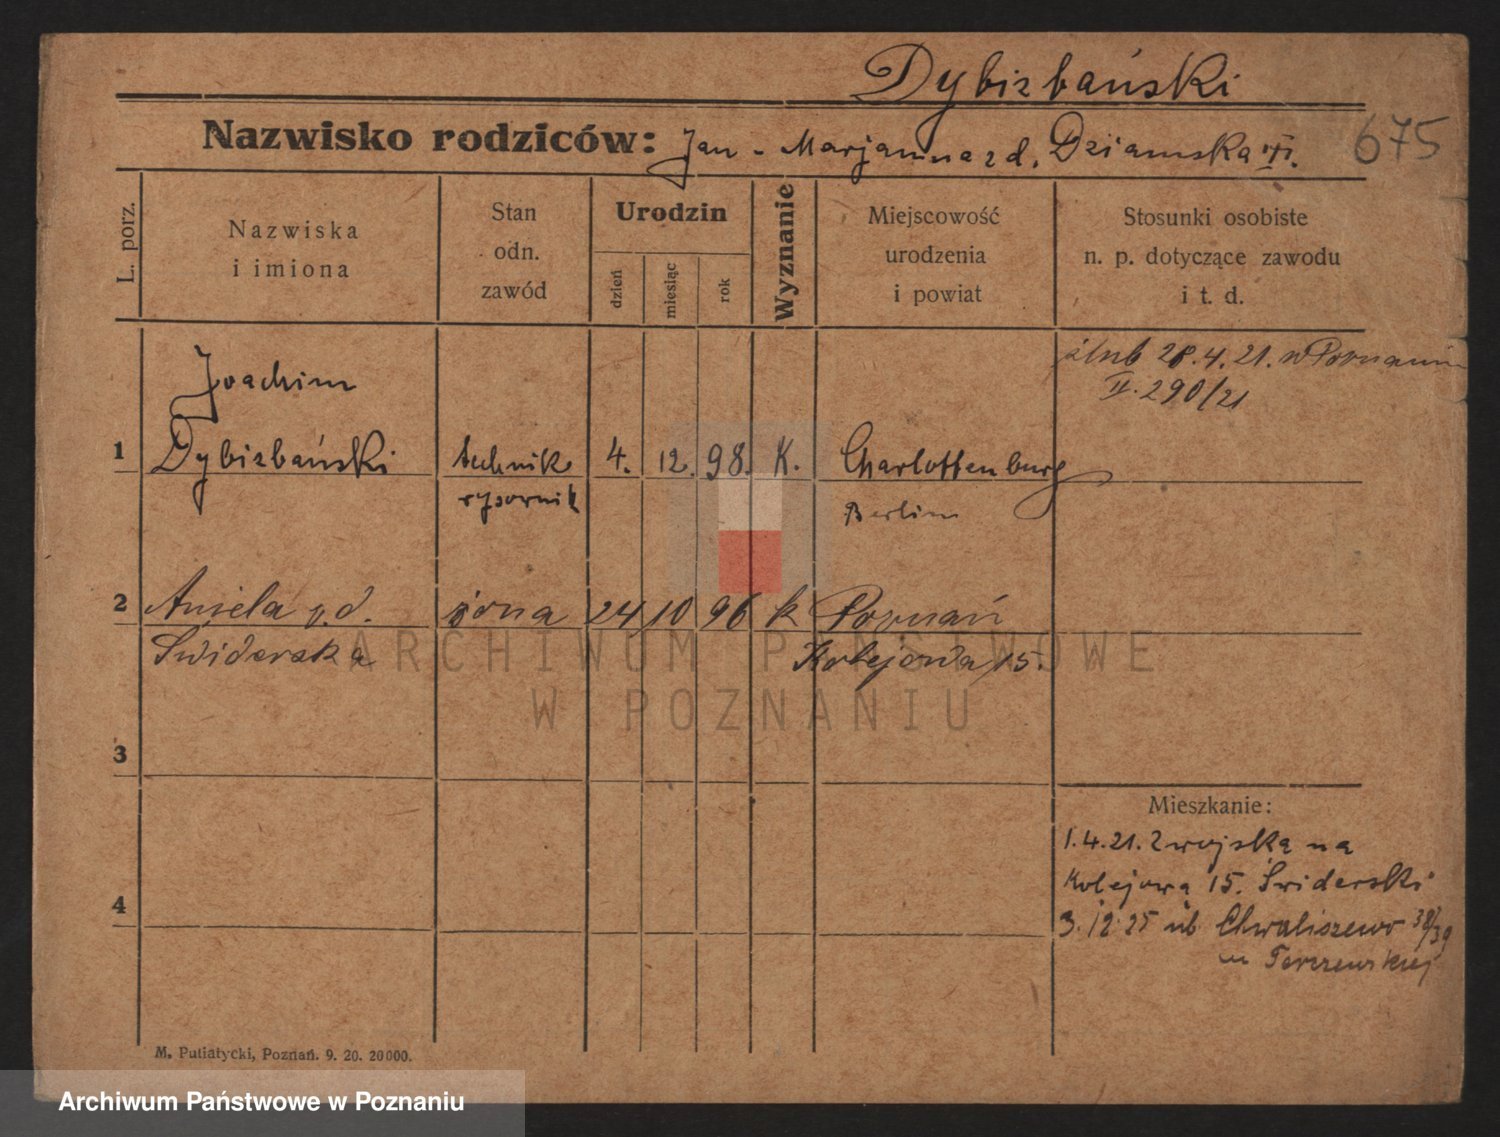 Dybizbański
Nazwisko rodziców: Jan - Marjanna z d. Dziamska
675
L. porz.
Nazwiska
i imiona
Stan
odn.
zawód
Urodzin
dzień
miesiąc
rok
Wyznanie
Miejscowość
urodzenia
i powiat
Stosunki osobiste
n. p. dotyczące zawodu
i t. d.
ślub 28.4.21. w Poznaniu
II. 290/21
Joachim
1 Dybizbański technik 4. 12. 98. K. Charlottenburg
rysownik Berlin
2 Aniela z d. żona 24 10 96 k Poznań
Świderska Kolejowa 15.
3
Mieszkanie:
1.4.21. z wojska na
Kolejową 15. Świderski
4
3.12.25 ul. Chwaliszewo 38/39
u
M. Putiatycki, Poznań. 9. 20. 20000.
ARCHIWUM PAŃSTWOWE
W POZNANIU
Archiwum Państwowe w Poznaniu